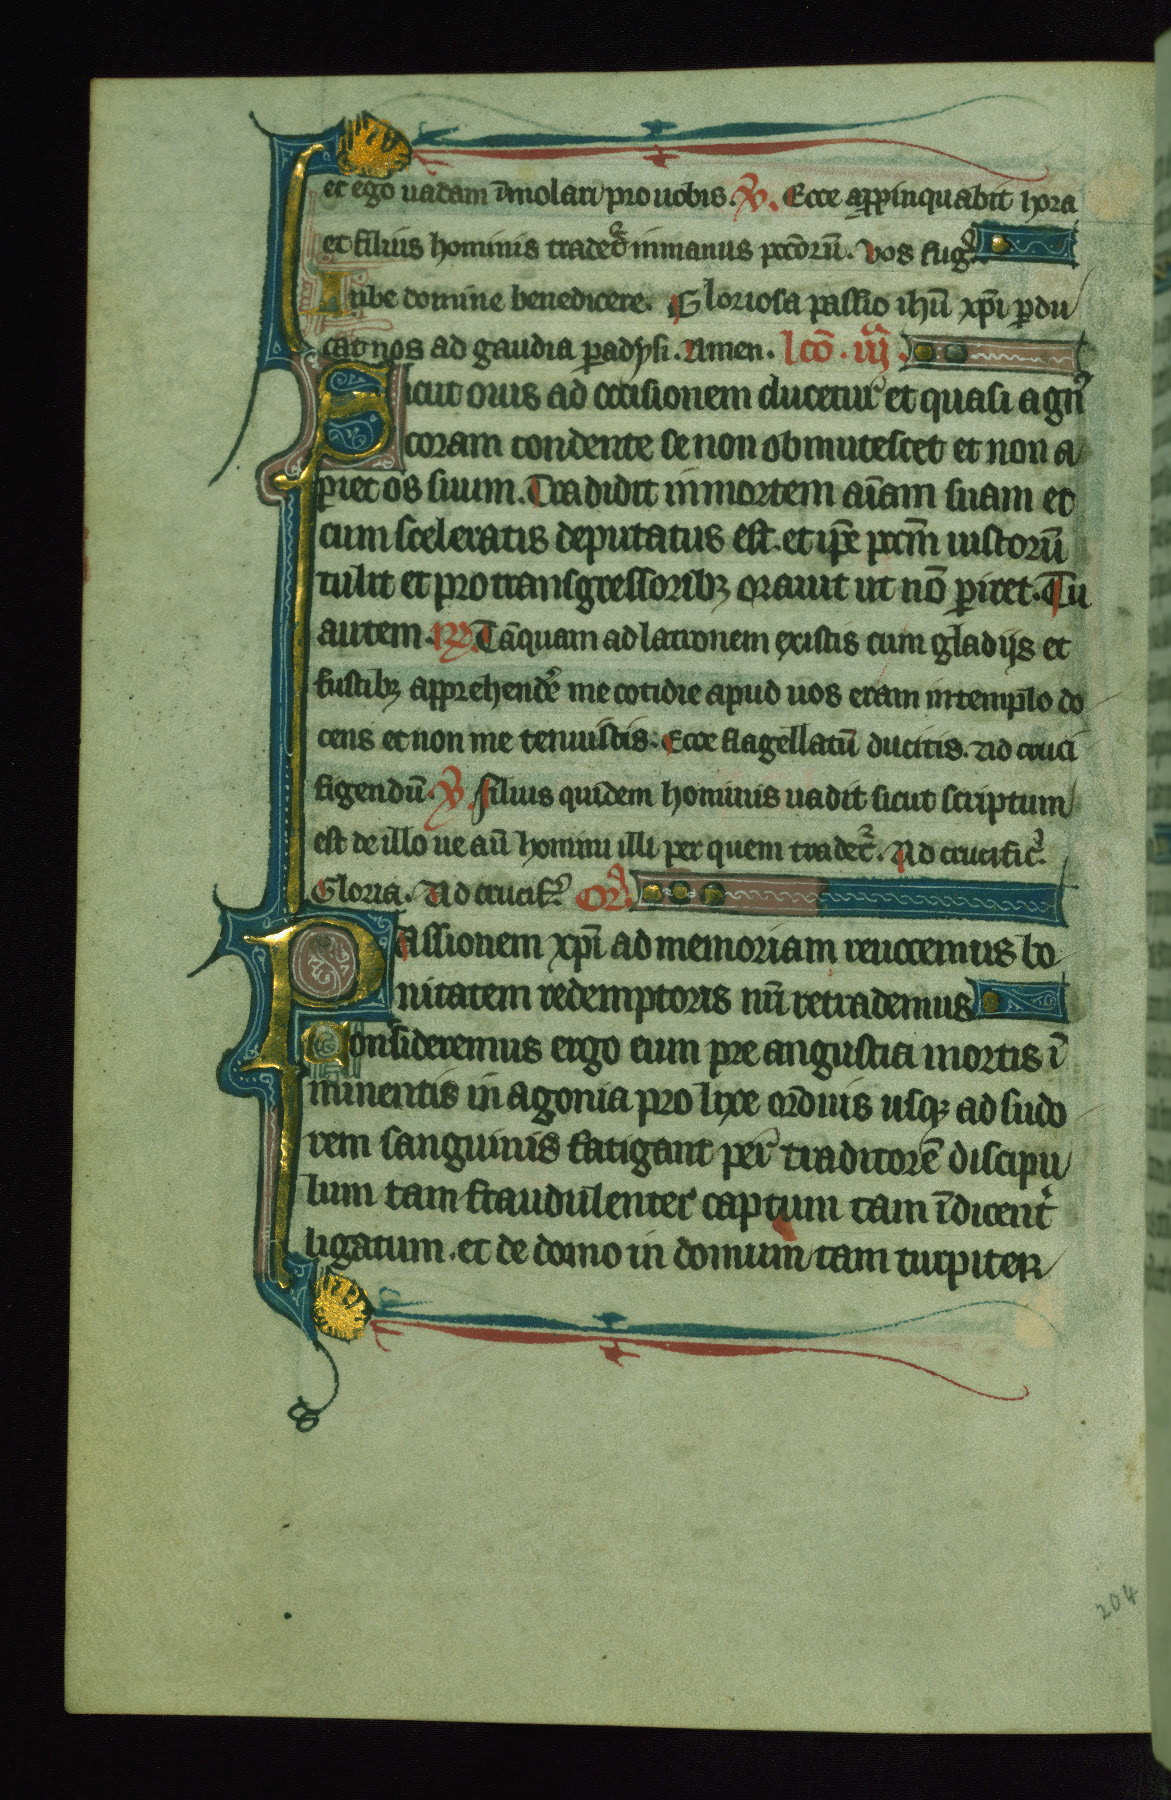 et ego uadam īmolari pro uobis. V̄. Ecce app̄inquabit hora
et filius hominis tradet᷑ in manus pccōrū. Vos fug᷑.
Iube domine benedicere. Gloriosa passio ihū xp̄i ꝑdu
cat nos ad gaudia ꝑadysi. Amen. lcō. iij.
Sicut ouis ad occisionem ducetur et quasi agn᷒
coram tondente se non obmutescet et non a
ꝑiet os suum. Tradidit in mortem aīam suam et
cum sceleratis deputatus est. et ip̄e pctm̄ iustorū
tulit et pro transgressoribꝫ orauit ut nō ꝑiret. Tu
autem. R̄. Tāquam ad lationem existis cum gladijs et
fustibꝫ apprehendē me cotidie apud uos eram in templo do
cens et non me tenuistis. Ecce flagellatū ducitis. Ad cruci
figendū. V̄. Filius quidem hominis uadit sicut scriptum
est de illo ue aū homini illi per quem tradet᷑. Ad crucific᷑.
Gloria. Ad crucif᷑. Or᷑.
Passionem xp̄i ad memoriam reuocemus bo
nitatem redemptoris nr̄i retrademus
Consideremus ergo eum pre angustia mortis ī
minentis in agonia prolixe orōnis usqꝫ ad sudo
rem sanguinis fatigant per traditorē discipu
lum tam fraudulenter captum tam īdicent᷑
ligatum. et de domo in domum tam turpiter
204